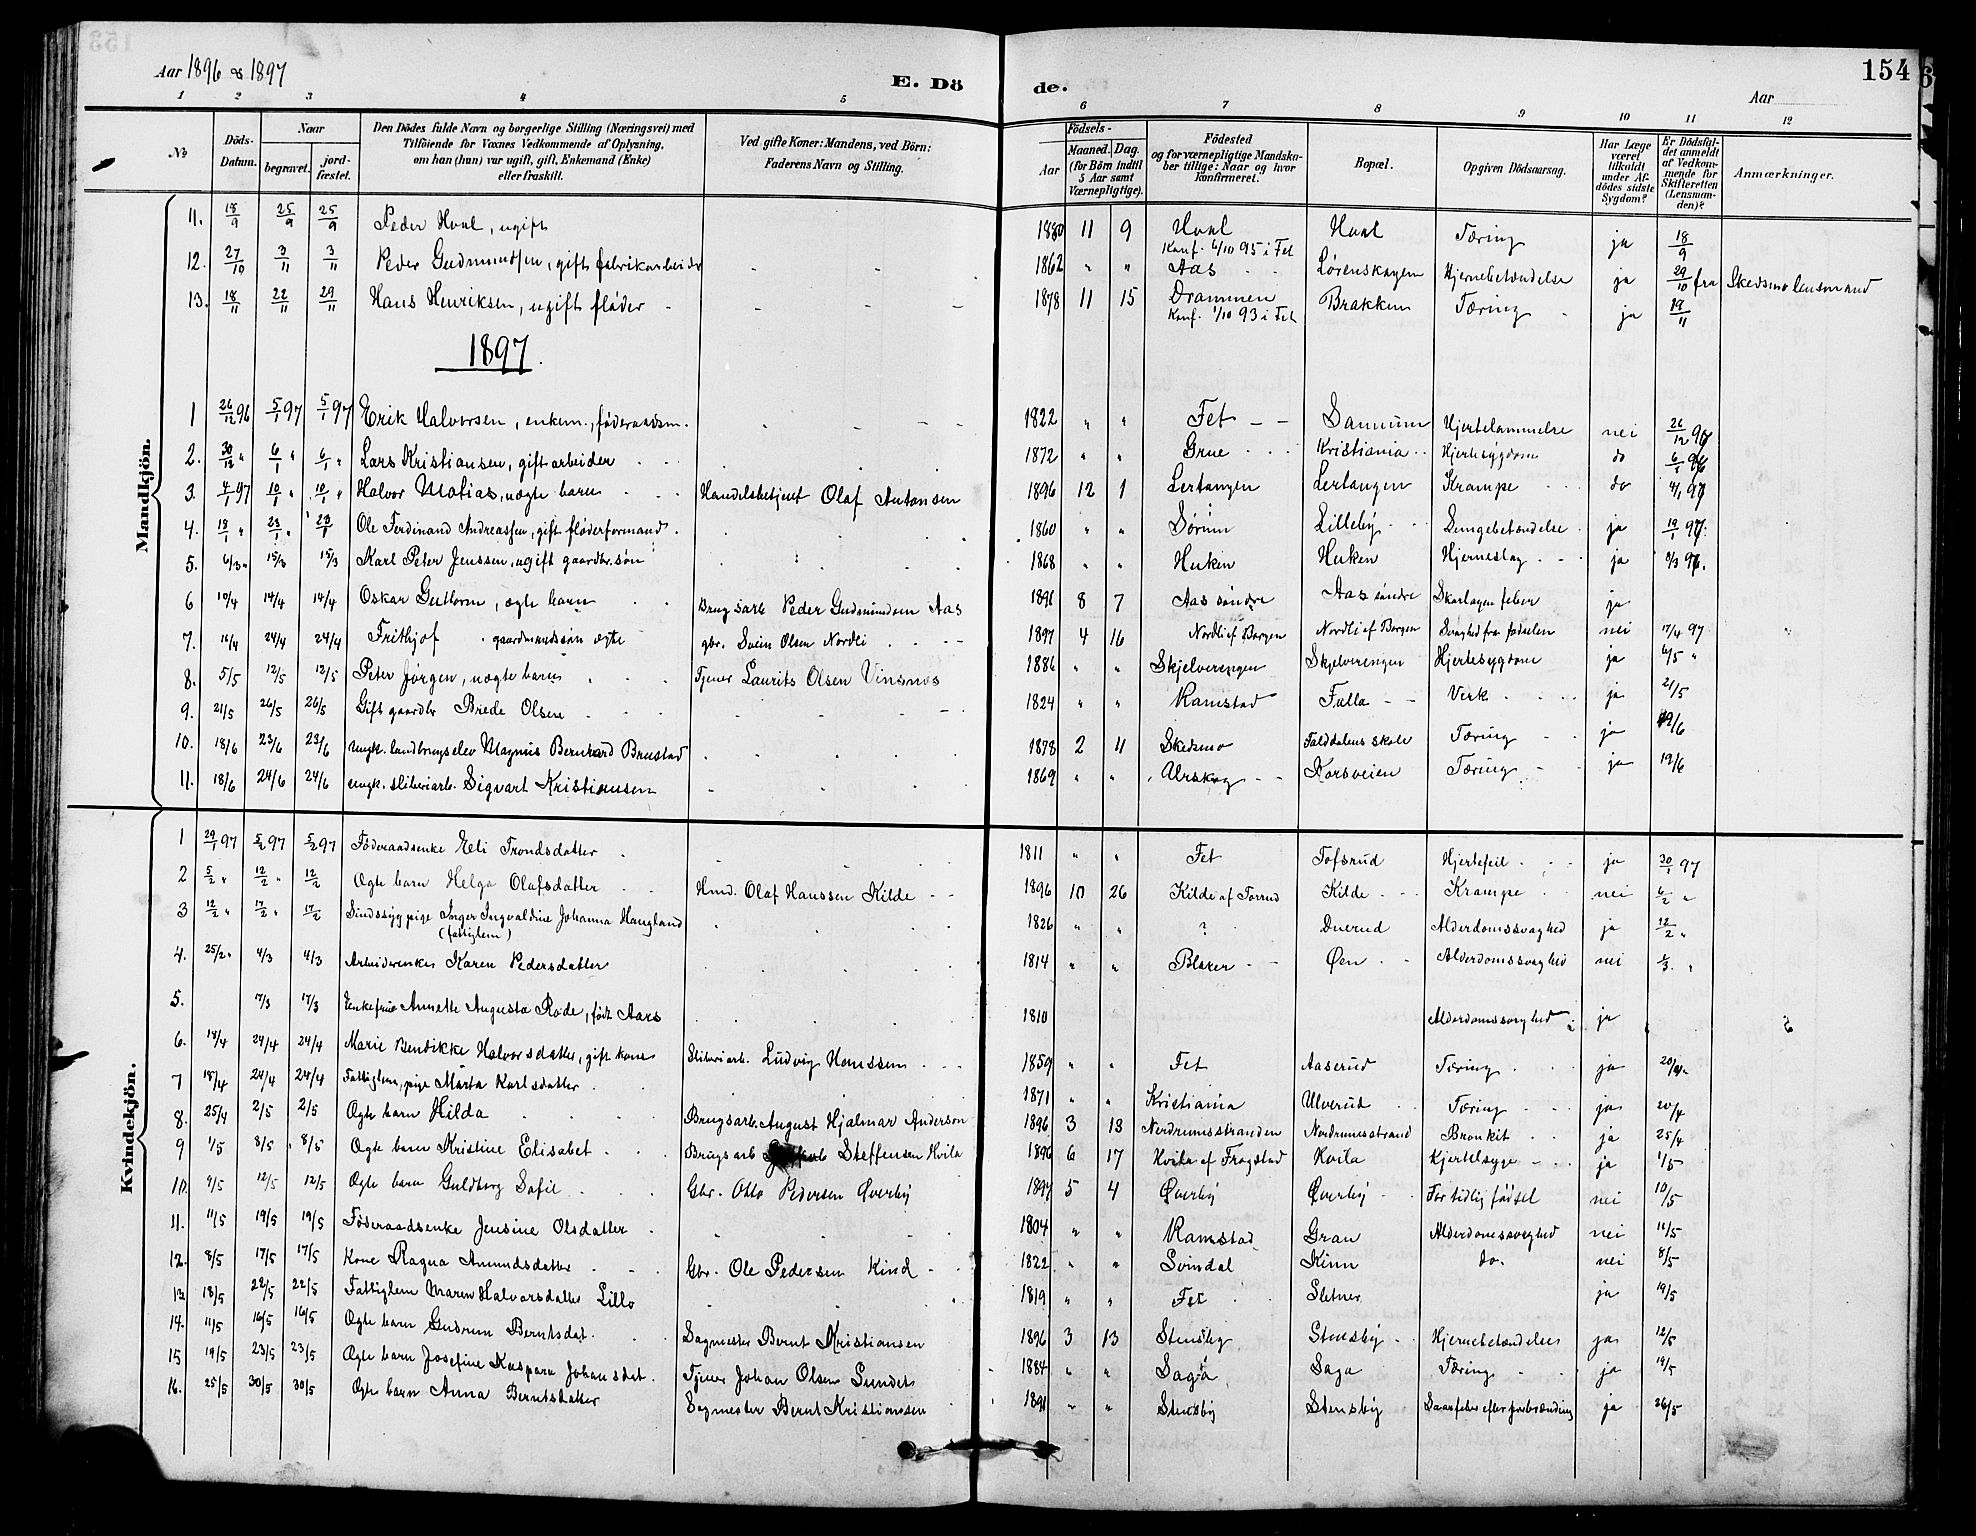 154
Aar 1896 & 1897
E. Dö de.
Aar
1 2 3 4 5 6 7 8 9 10 11 12
No
Döds-Datum.
Naar
begravet.
jord-fæstet.
Den Dödes fulde Navn og borgerlige Stilling (Næringsvei) med Tilföiende for Voxnes Vedkommende af Oplysning, om han (hun) var ugift, gift, Enkemand (Enke) eller fraskilt.
Ved gifte Koner: Mandens, ved Börn: Faderens Navn og Stilling.
Födsels-
Aar
Maaned. Dag.
(for Börn indtil 5 Aar samt Værnepligtige).
Födested og for værnepligtige Mandskaber tillige: Naar og hvor konfirmeret.
Bopæl.
Opgiven Dödsaarsag.
Har Læge været tilkaldt under Afdödes sidste Sygdom?
Er Dödsfaldet anmeldt af Vedkommende for Skifteretten (Lensmanden)?
Anmærkninger.
Mandkjön.
11. 18/9 25/9 25/9 Peder Hval, ugift 1880 11 9 Hval Konf. 6/10 95 i Fet Hval Tæring ja 18/9
12. 27/10 3/11 3/11 Peder Gudmundsen, gift fabrikarbeider 1862 " " Aas Lørenskogen Hjernebetændelse ja 29/10 fra Skedsmo lensmand
13. 18/11 22/11 29/11 Hans Henriksen, ugift fløder 1878 11 15 Drammen Konf. 1/10 93 i Fet Brakken Tæring ja 19/11
1897.
1 26/12 96 5/1 97 5/1 97 Erik Halvorsen, enkem., føderaadsm. 1822 " " Fet Hjertelammelse nei 26/12
2. 30/12 " 6/1 " 6/1 " Lars Kristiansen, gift arbeider 1872 " " Grue Kristiania Hjertesygdom do 6/1
3. 4/1 97 10/1 " 10/1 " Halvor Matias, uægte barn Handelsbetjent Olaf Antonsen 1896 12 1 Lertangen Lertangen Krampe do 4/1 97
4. 18/1 " 23/1 " 23/1 Ole Ferdinand Andreassen, gift fløderformand 1860 " " Sørum Lilleby Lungebetændelse ja 19/1 97.
5. 6/3 " 15/3 15/3 Karl Peter Jenssen, ugift gaardbr. søn 1868 " " Huken Huken Hjerneslag ja 97.
6 10/4 14/4 14/4 Oskar Guttorm, ægte barn Brugsarb Peder Gudmundsen Aas 1891 8 7 Aas søndre Aas søndre Skarlagensfeber ja
7. 16/4 24/4 24/4 Frithjof gaardmandssøn ægte gbr. Svein Olsen Nordli 1897 4 16 Nordli af Borgen Nordli af Borgen Svaghed fra fødselen nei 17/4 97
8. 5/5 12/5 12/5 Peter Jørgen, uægte barn Tjener Laurits Olsen Vinsnes 1886 " " Skjelverengen Skjelverengen Hjertesygdom ja 6/5 "
9. 21/5 26/5 26/5 Gift gaardbr Brede Olsen 1824 " " Ramstad Falla Verk ja 21/5
10. 18/6 23/6 23/6 ungk. landbrugselev Magnus Bernhard Brustad 1878 2 11 Skedsmo Falddalens skole Tæring ja 19/6
11. 18/6 24/6 24/6 ungk. sliberiarb. Sigvart Kristiansen 1869 " " Urskog Korsveien Tæring ja 19/6
Kvindekjön.
1 29/1 97 5/2 97 5/2 97 Føderaadsenke Eli Trondsdatter 1811 " " Fet Tofsrud Hjertefeil ja 30/1 97
2 5/2 " 12/2 " 12/2 Ægte barn Helga Olafsdatter Hmd. Olaf Hanssen Kilde 1896 10 26 Kilde af Torrud Kilde Krampe nei 6/2 "
3 12/2 " 17/2 " 17/2 Sindssyg pige Inger Ingvaldine Johanna Haugland (fattiglem) 1826 " " ? Duerud Alderdomssvaghed ja 12/2 "
4. 25/2 " 4/3 4/3 Arbeiderenke Karen Pedersdatter 1814 " " Blaker Øen Alderdomssvaghed nei "
5. 17/3 17/3 Enkefrue Annette Augusta Rode, født Aars 1810 Alderdomssvaghed ja
6. 18/4 24/4 24/4 Marie Bendikke Halvorsdatter, gift kone Sliberiarb. Ludvig Hanssen 1859 " " Fet Aaserud Tæring ja 20/4
7 18/4 24/4 24/4 Fattiglem, pige Marta Karlsdatter 1871 " " Kristiania Ulverud Tæring ja 20/4
8. 25/4 2/5 2/5 Ægte barn Hilda Brugsarb. August Hjalmar Anderson 1896 3 13 Nordrumsstranden Nordrumsstrand Bronkit ja 25/4
9 1/5 8/5 8/5 Ægte barn Kristine Elisabet Brugsarb Steffensen Hvila 1896 6 17 Hvila af Frogstad Hvila Kjertelsyge ja 1/5
10. 9/5 12/5 12/5 Ægte barn Guldborg Sofie Gbr. Otto Pedersen Øverby 1897 5 4 Øverby Øverby For tidlig fødsel nei 10/5
11. 11/5 19/5 19/5 Føderaadsenke Jensine Olsdatter 1804 " " Ramstad Gran Alderdomssvaghed nei 11/5
12. 8/5 17/5 17/5 Kone Ragna Amundsdatter Gbr. Ole Pedersen Kind 1822 " " Svindal Kinn do. nei 8/5
13 18/5 22/5 22/5 Fattiglem Maren Halvorsdatter Lillo 1819 " " Fet Sletner ja 19/5
14. 11/5 16/5 16/5 Ægte barn Gudrun Berntsdat. Sagmester Bernt Kristiansen 1896 3 13 Stensby Stensby Hjernebetændelse ja 12/5
15 19/5 23/5 23/5 Ægte barn Josefine Kaspara Johansdat. Tjener Johan Olsen Sundet 1884 " " Saga Saga Tæring ja 19/5
16. 25/5 30/5 30/5 Ægte barn Anna Berntsdatter Sagmester Bernt Kristiansen 1891 " " Stensby Stensby Saarfeber efter forbrænding ja 26/5